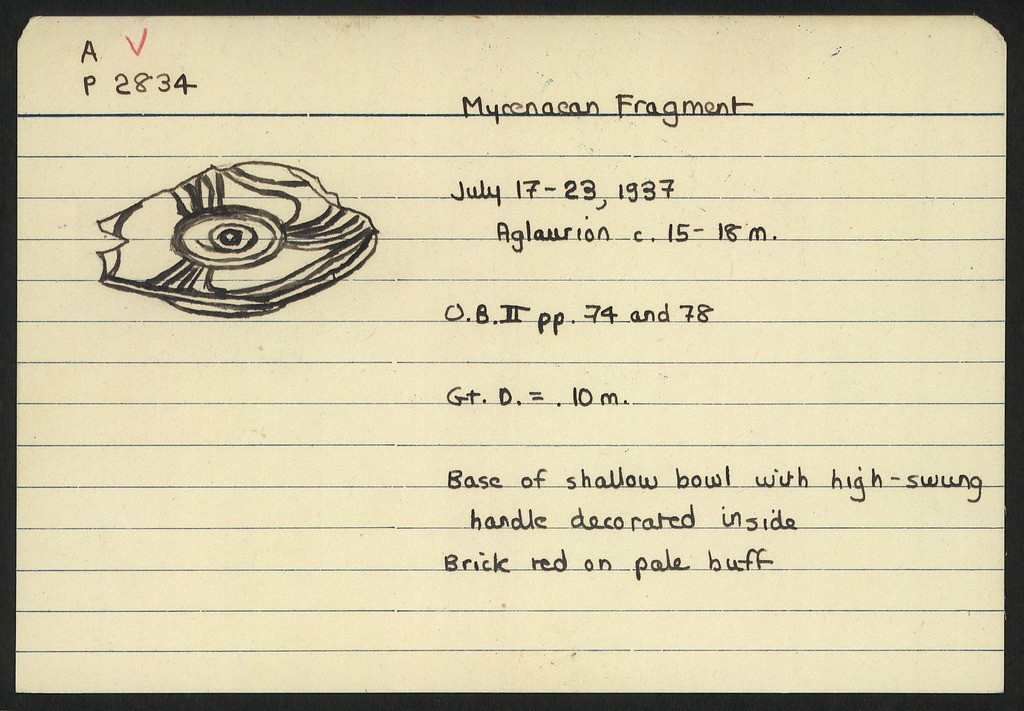 A V
P 2834
Mycenaean Fragment
July 17-23, 1937
Aglaurion c. 15-18 m.
O.B. II pp. 74 and 78
Gt. D. = .10 m.
Base of shallow bowl with high-swung
handle decorated inside
Brick red on pale buff